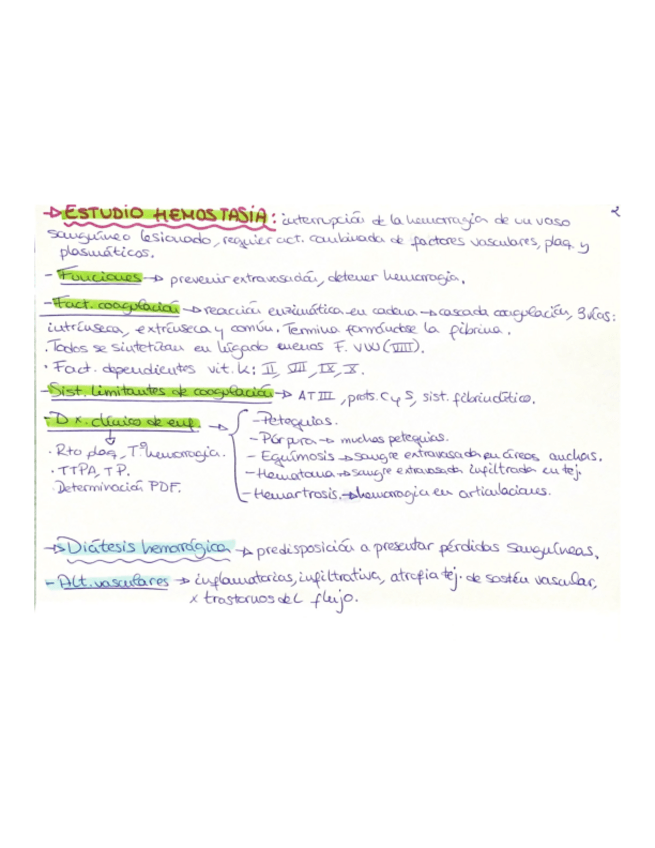 → ESTUDIO HEMOSTASIA: interrupción de la hemorragia de un vaso 2
sanguíneo lesionado, requier act. combinada de factores vasculares, plaq. y
plasmáticos.
- Funciones → prevenir extravasación, detener hemorragia.
- Fact. coagulación → reacción enzimática en cadena → cascada coagulación, 3 vías:
intrínseca, extrínseca y común. Termina formándose la fibrina.
· Todos se sintetizan en hígado menos F. VW (VIII).
· Fact. dependientes vit. k: II, VII, IX, X.
- Sist. limitantes de coagulación → AT III, prots. C y S, sist. fibrinolítico.
- Dx. clínico de enf. → - Petequias.
- Púrpura → muchas petequias.
· Rto plaq, Tº hemorragia. - Equimosis → sangre extravasada en áreas anchas.
· TTPA, TP. - Hematoma → sangre extravasada infiltrada en tej.
· Determinación PDF. - Hemartrosis. → hemorragia en articulaciones.
→ Diátesis hemorrágica → predisposición a presentar pérdidas sanguíneas.
- Alt. vasculares → inflamatorias, infiltrativa, atrofia tej. de sostén vascular,
x trastornos del flujo.